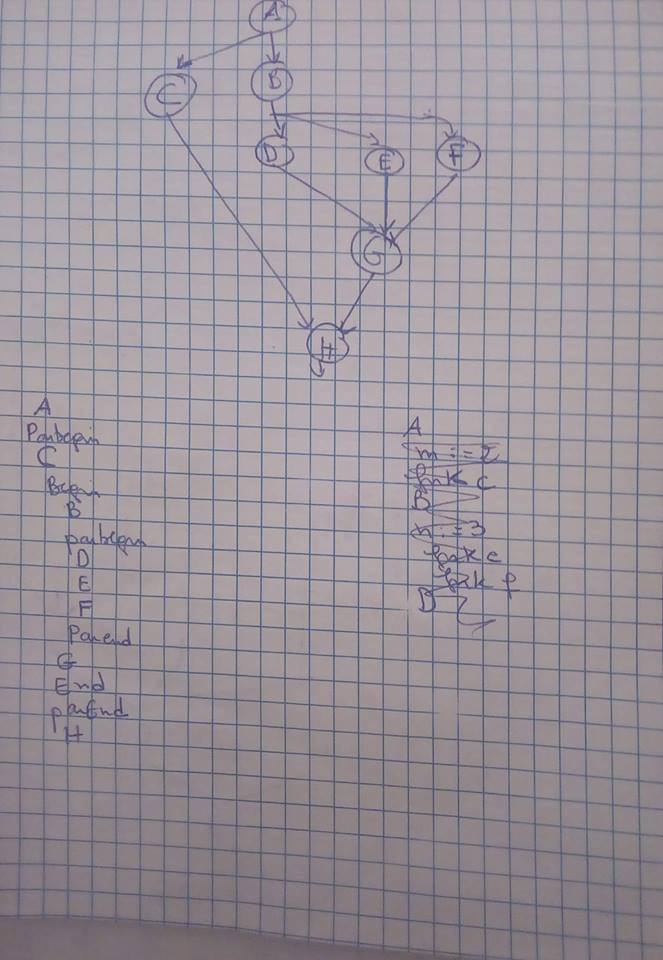 A
C
B
D
E
F
G
H
A
Parbegin
C
Begin
B
parbegin
D
E
F
Parend
G
End
parEnd
H
A
m := 2
fork c
B
n := 3
fork e
fork f
D